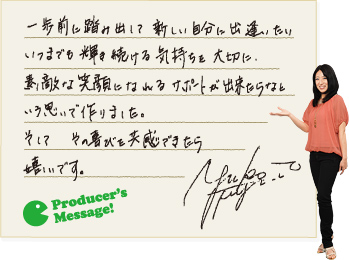 一歩前に踏み出して 新しい自分に出逢いたい
いつまでも輝き続ける気持ちを大切に、
素敵な笑顔になれるサポートが出来たらなと
いう思いで作りました。
そして その喜びを共感できたら
嬉しいです。
Producer's
Message!